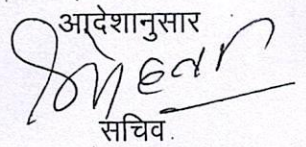 आदेशानुसार
सचिव.